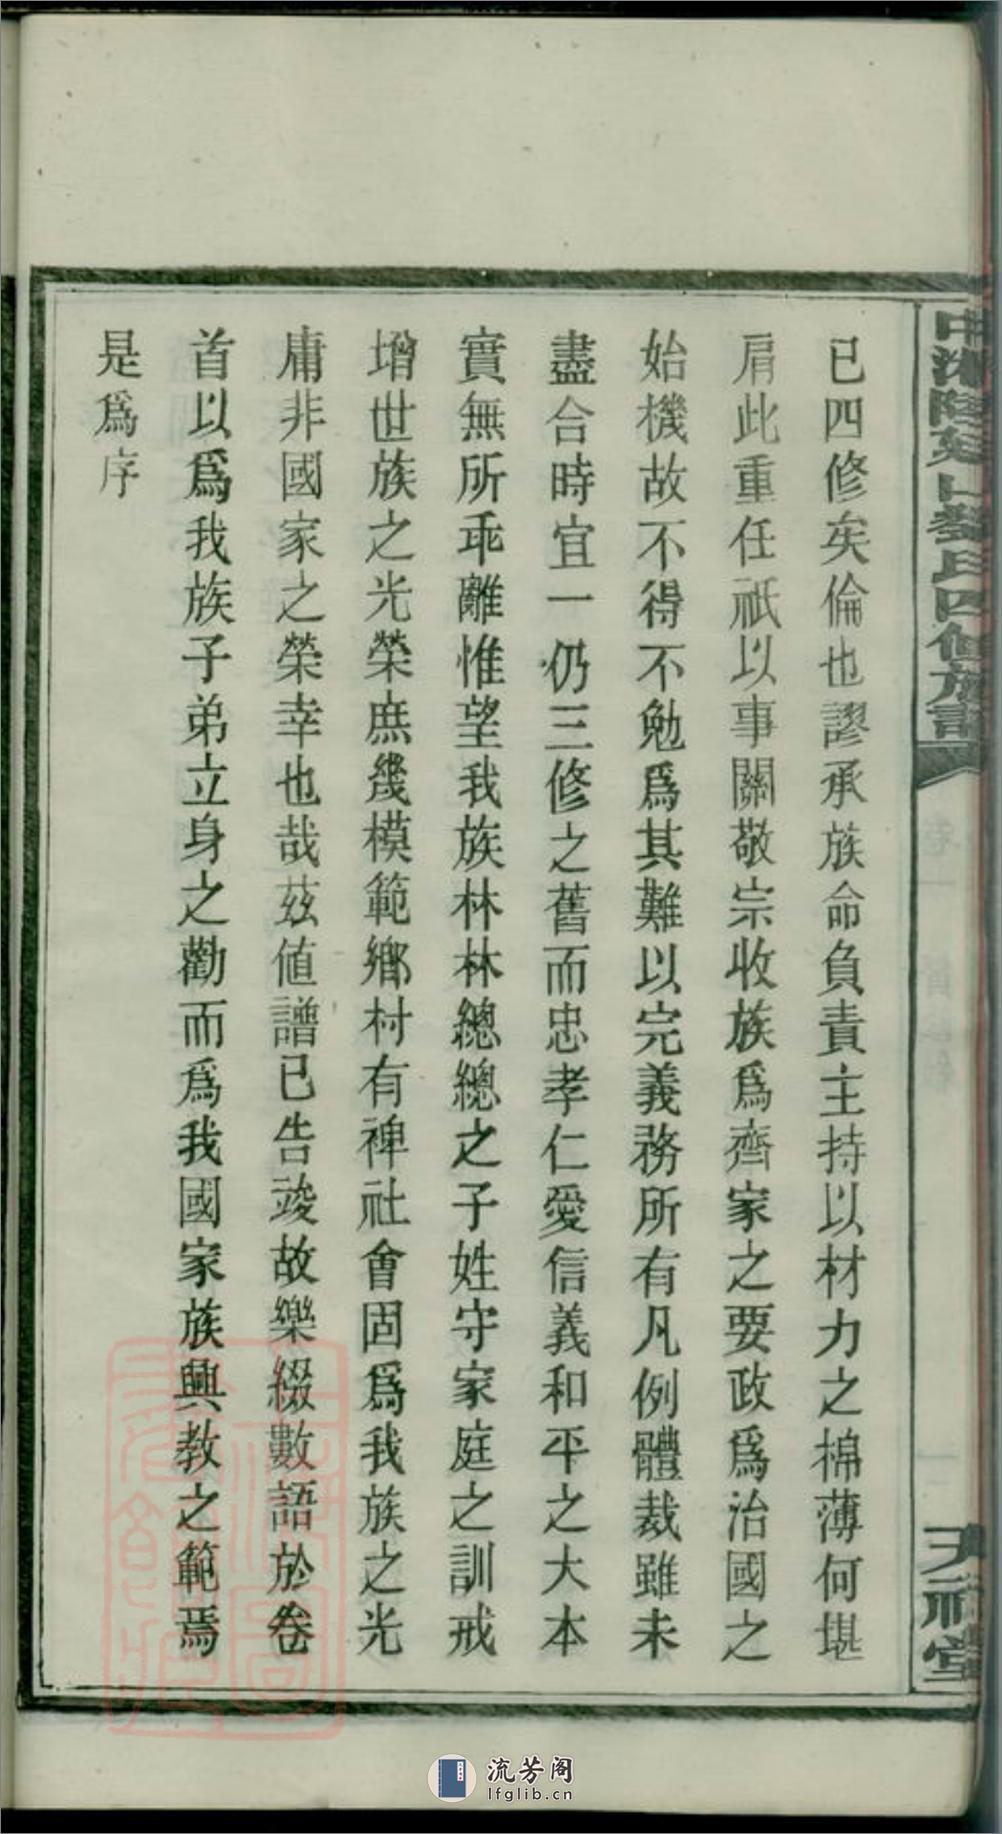 已四修矣倫也謬承族命負責主持以材力之棉薄何堪
肩此重任祇以事關敬宗收族爲齊家之要政爲治國之
始機故不得不勉爲其難以完義務所有凡例體裁雖未
盡合時宜一仍三修之舊而忠孝仁愛信義和平之大本
實無所乖離惟望我族林林總總之子姓守家庭之訓戒
增世族之光榮庶幾模範鄉村有裨社會固爲我族之光
庸非國家之榮幸也哉茲値譜已告竣故樂綴數語於卷
首以爲我族子弟立身之勸而爲我國家族興教之範焉
是爲序
氏四修族譜
流芳阁
lfglib.cn